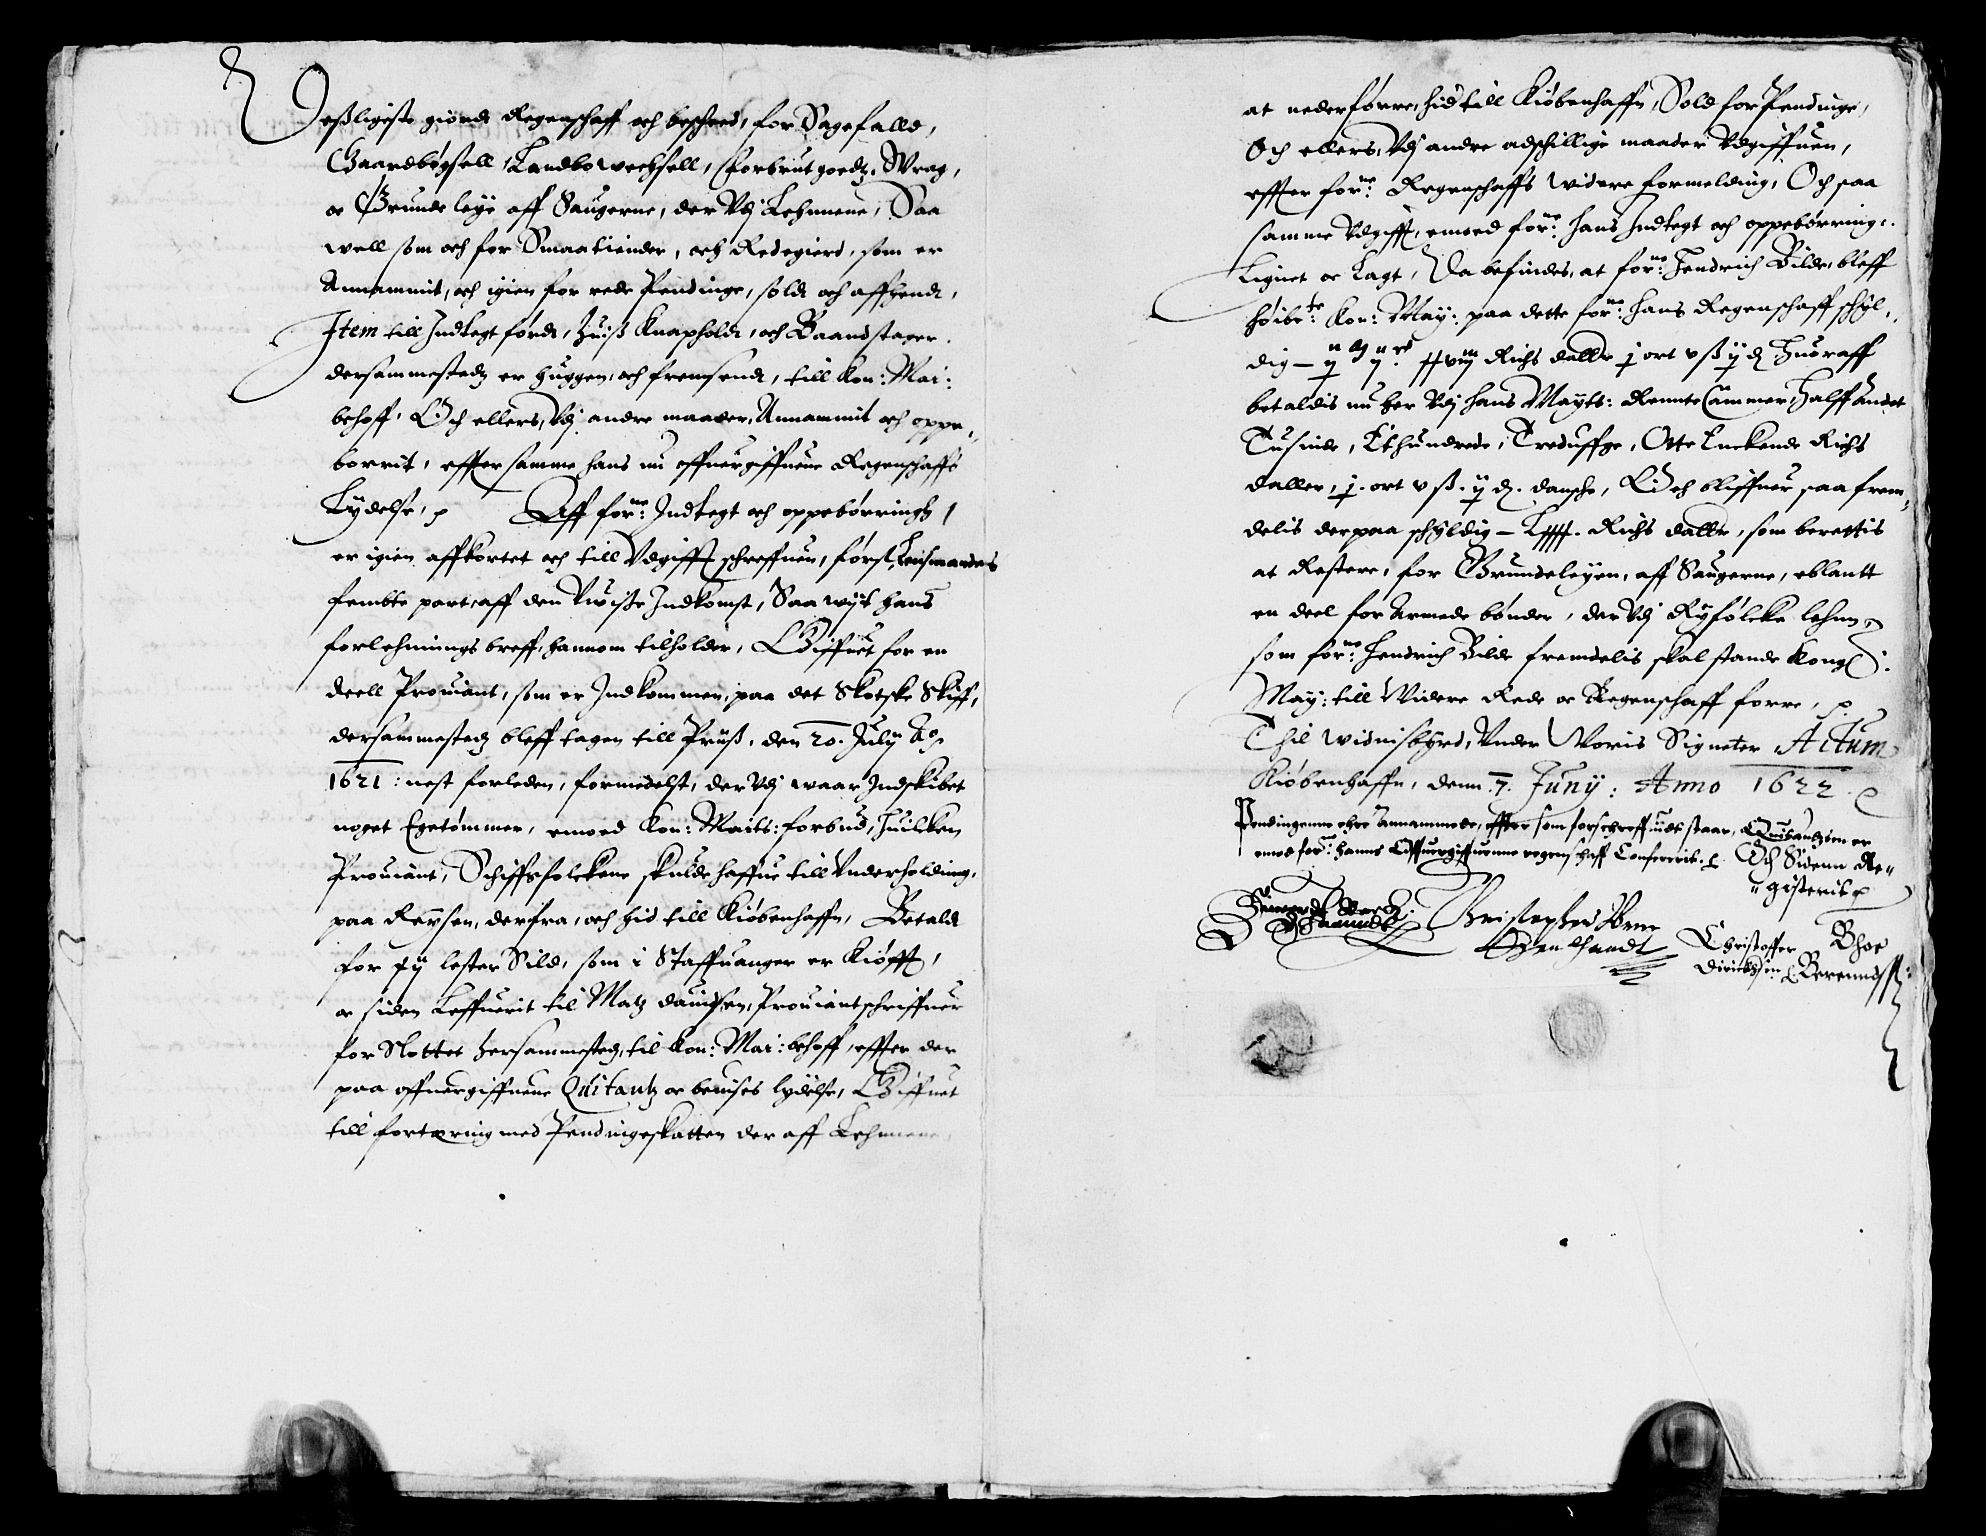 Desligeste giorde Regenschaff och bescheed, for Sagefalld,
Gaardbögsell, Landbowechsell, Forbrut goedtz, Wrag,
oc Grundeleye aff Saugerne, der Vdj Lehnnene, Saa
well som och for Smaatiender, och Redegierd, som er
Annammit, och igien for rede Pendinge, soldt och affhendt,
Item till Indtegt fördt, huiss Knapholdt, och Baandstager
dersammestedtz er huggen, och fremsendt, till Kon: Mai:
behoff. Och ellers, Vdj andre maader, Annammit och oppe-
borrit, effter samme hans nu offuergiffuene Regenschaffs
Lydelse, p Aff forne: Indtegt och oppebörringh
er igien affkortet och till Vdgifft schreffuen, först, Lensmandens
fembte part, aff den Vwisse Indkomst, Saawijt hans
forlehnings breff, hannom tilholder, Giffuet for en
deell Prouiant, som er Indkommen, paa det Skotske Skiff,
dersammestedtz bleff tagen till Priiss, den 20. July Ao
1621: nest forleden, formedelst, der Vdj waar Indskibet
noget Egetömmer, emoed Kon: Maits: forbud, huilcken
Prouiant, Schiffsfolckene skulde haffue till Vnderholding,
paa Reysen, derfra, och hid till Kiöbenhaffn, Betaldt
for xij lester Sild, som i Staffuanger er Kiöfft,
oc siden Leffuerit til Matz dauidsen, Prouiantschriffuer
for Slottet hersammestedtz, til Kon: Mai: behoff, effter der
paa offuergiffuene Quitantz oc beuises lydelse, Giffuet
till fortæring med Pendingeskatten der aff Lehnnene,
at nederförre, hid till Kiöbenhaffn, Sold for Pendinge,
Och ellers, Vdj andre adschillige maader Vdgiffuen,
effter forne: Regenschaffs Widere formelding, Och saa
samme Vdgifft, emoed forne: hans Indtegt och oppebörring,
Lignet oc Lagt, Da befindes, at forne: Hendrich Bilde, bleff
höibete: Kon: May: paa dette forne: hans Regenschaff schyl-
dig - Richs daller j ort v ß ij d huoraff
betaldis nu her Vdj hans Mayts: Rennte Cammer, halff Andet
Tusinde, Ithundrede, Treduffge, Otte Enckende Richs
daller, j. ort v ß. ij d. dansche, Och bliffuer saa frem-
delis derpaa schyldig - Richs daller, som berettis
at Restere, for Grundeleyen, aff Saugerne, eblantt
en deel for Armede bönder, der Vdj Ryfölcke lehnn
som forne: Hendrich Bilde fremdelis skal stande Kong:
May: till Widere Rede oc Regenschaff forre, p.
Thil widnisbyrd, Vnder Woris Signeter Actum
Kiöbenhaffn, denn 7. Juny: Anno 1622.
Pendingenne ehre Annammede, effter som forschreffuidt staar, Quitantzien er
emod forne: hanns Offuergiffuenne regenschaff Confererit. Och Sidenn Re-
gisterit
Christoffer Bhoe
Berenndss: